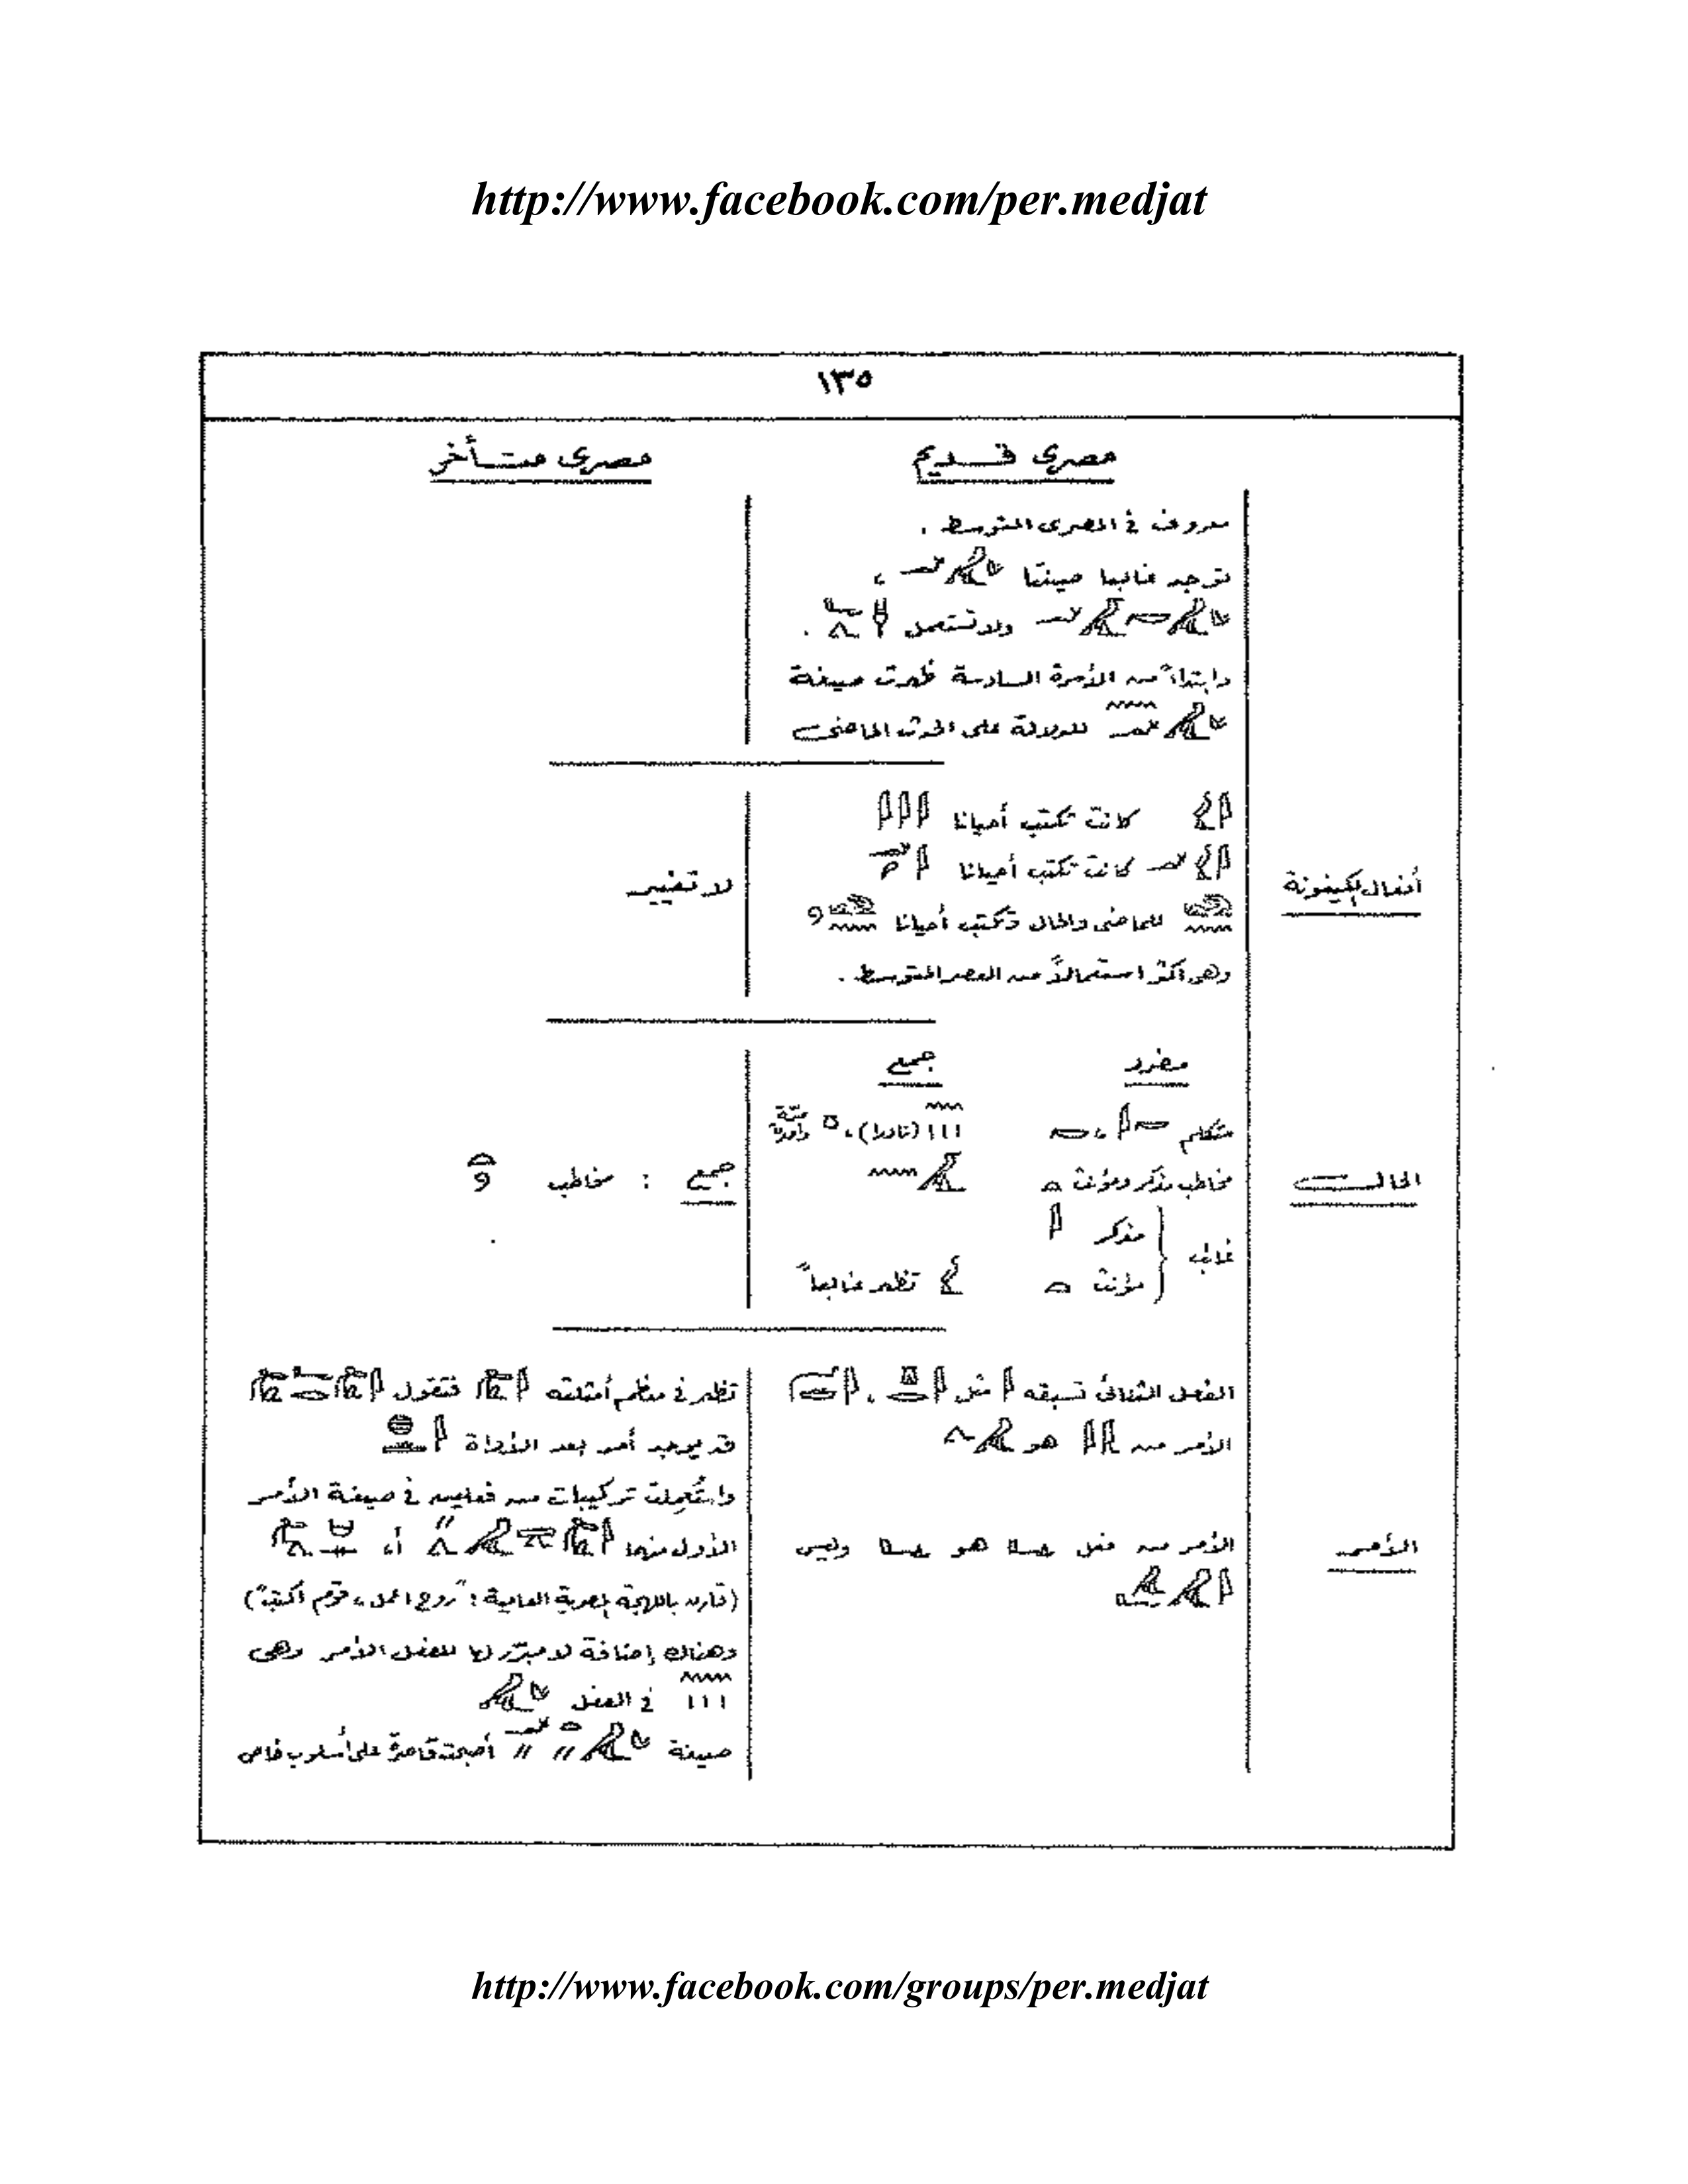 http://www.facebook.com/per.medjat
١٣٥
مصرى قديم
مصرى متأخر
معروف فى المصرى المتوسط .
توجد غالبا صيغتا
ولا تستعمل
وابتداءً من الأسرة السادسة ظهرت صيغة
للدلالة على الحدث الماضى
أفعال الكينونة
كانت تكتب أحيانا
كانت تكتب أحيانا
للماضى والحال وتكتب أحيانا
وهو أكثر استعمالاً من العصر المتوسط .
لا تغيير
الحالة
مفرد
جمع
متكلم
(نادرا)،
مخاطب مذكر ومؤنث
غائب
مذكر
مؤنث
تظهر غالباً
جمع : مخاطب
الأمر
الفعل الثنائى تسبقه مثل
الأمر من هو
الأمر من فعل هو وليس
تظهر فى معظم أمثلته فتقول
قد يوجد أمر بعد الأداة
واستُعمِلت تركيبات من فعلين فى صيغة الأمر
الأول منهما أو
(قارن باللهجة المصرية العامية : "روح اعمل، قوم اكتب")
وهناك إضافة لا مبرر لها للفعل الأمر وهى
فى الفعل
صيغة أصبحت قاصرة على أسلوب خاص
http://www.facebook.com/groups/per.medjat